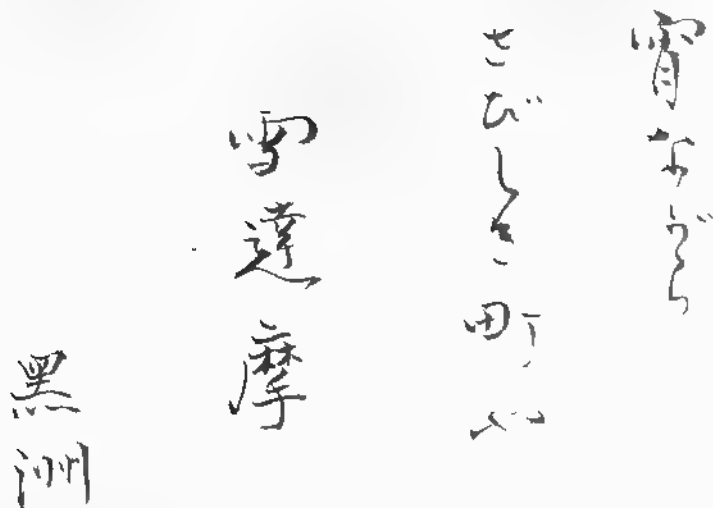 宵ながら
さびしき町や
雪達摩
黒洲